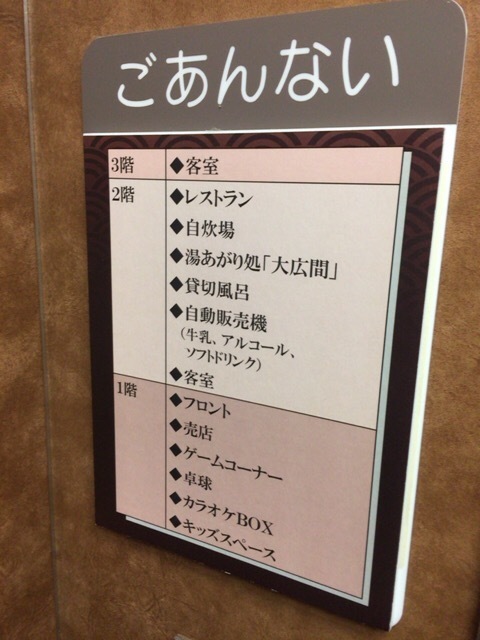 ごあんない
3階 ◆客室
2階 ◆レストラン
◆自炊場
◆湯あがり処「大広間」
◆貸切風呂
◆自動販売機
(牛乳、アルコール、
ソフトドリンク)
◆客室
1階 ◆フロント
◆売店
◆ゲームコーナー
◆卓球
◆カラオケBOX
◆キッズスペース